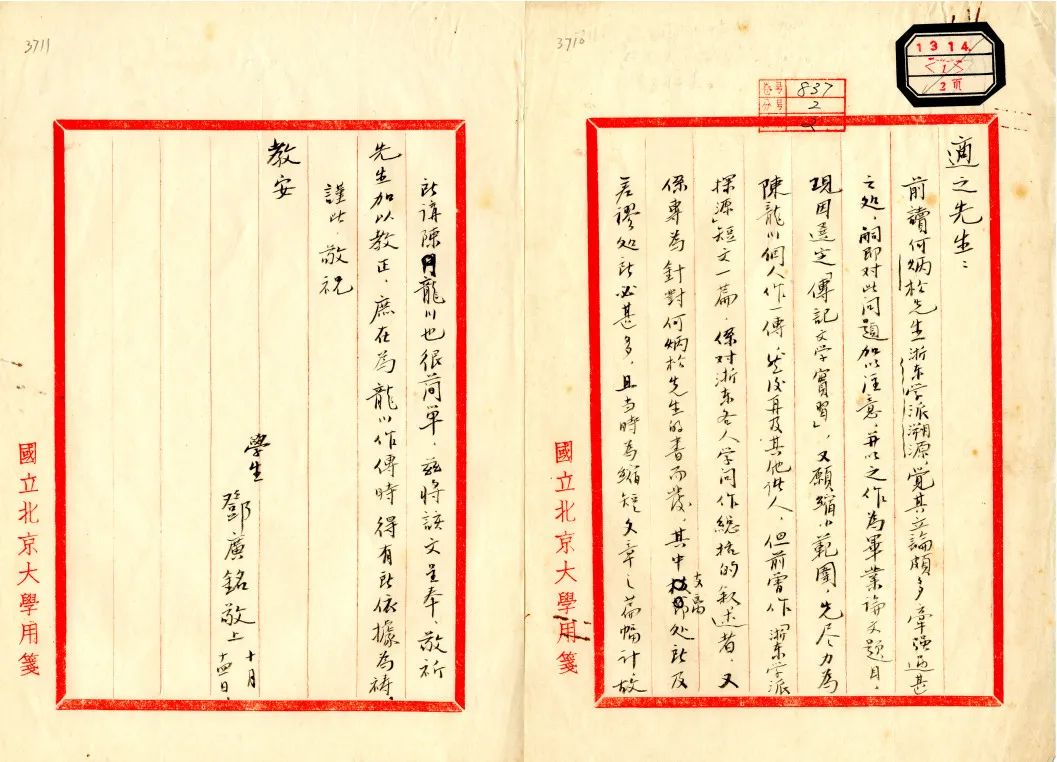 3710
1314
2页
卷号 837
分号 2
適之先生：
前讀何炳松先生浙东学派溯源，覺其立論頗多牽强過甚
之处，嗣即对此问題加以注意，并以之作為畢業論文題目，
現因選定「傳記文学實習」，又願縮小範圍，先尽力為
陳龍川個人作一傳，然後再及其他諸人，但前曾作「浙东学派
探源」短文一篇，係对浙东各人学问作總括的叙述者，又
係專為針對何炳松先生的書而發，其中支离处所及
差謬处所必甚多，且当時為縮短文章之萹幅計，故
國立北京大學用箋
3711
所講陳龍川也很简单，兹將該文呈奉，敬祈
先生加以教正，庶在為龍川作傳時得有所依據為禱，
謹此，敬祝
教安
學生
鄧廣銘敬上 十月
十四日，
國立北京大學用箋